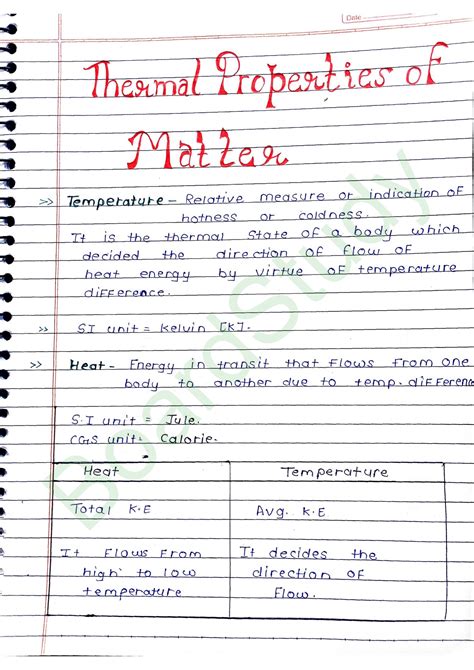 Date
Thermal Properties of
Matter
>> Temperature - Relative measure or indication of
hotness or coldness.
It is the thermal state of a body which
decided the direction of flow of
heat energy by virtue of temperature
difference.
>> SI unit = Kelvin [K].
>> Heat - Energy in transit that flows from one
body to another due to temp. difference
S.I unit = Jule.
CGS unit- Calorie.
Heat Temperature
Total K.E Avg. K.E
It flows from It decides the
high to low direction of
temperature flow.
BoardStudy